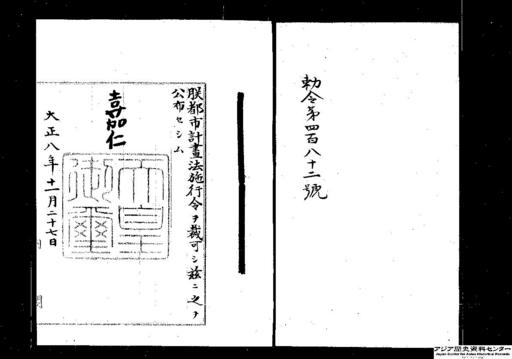 勅令第四百八十二號
朕都市計畫法施行令ヲ裁可シ茲ニ之ヲ
公布セシム
嘉仁
天皇御璽
大正八年十一月二十七日
アジア歴史資料センター
Japan Center for Asian Historical Records